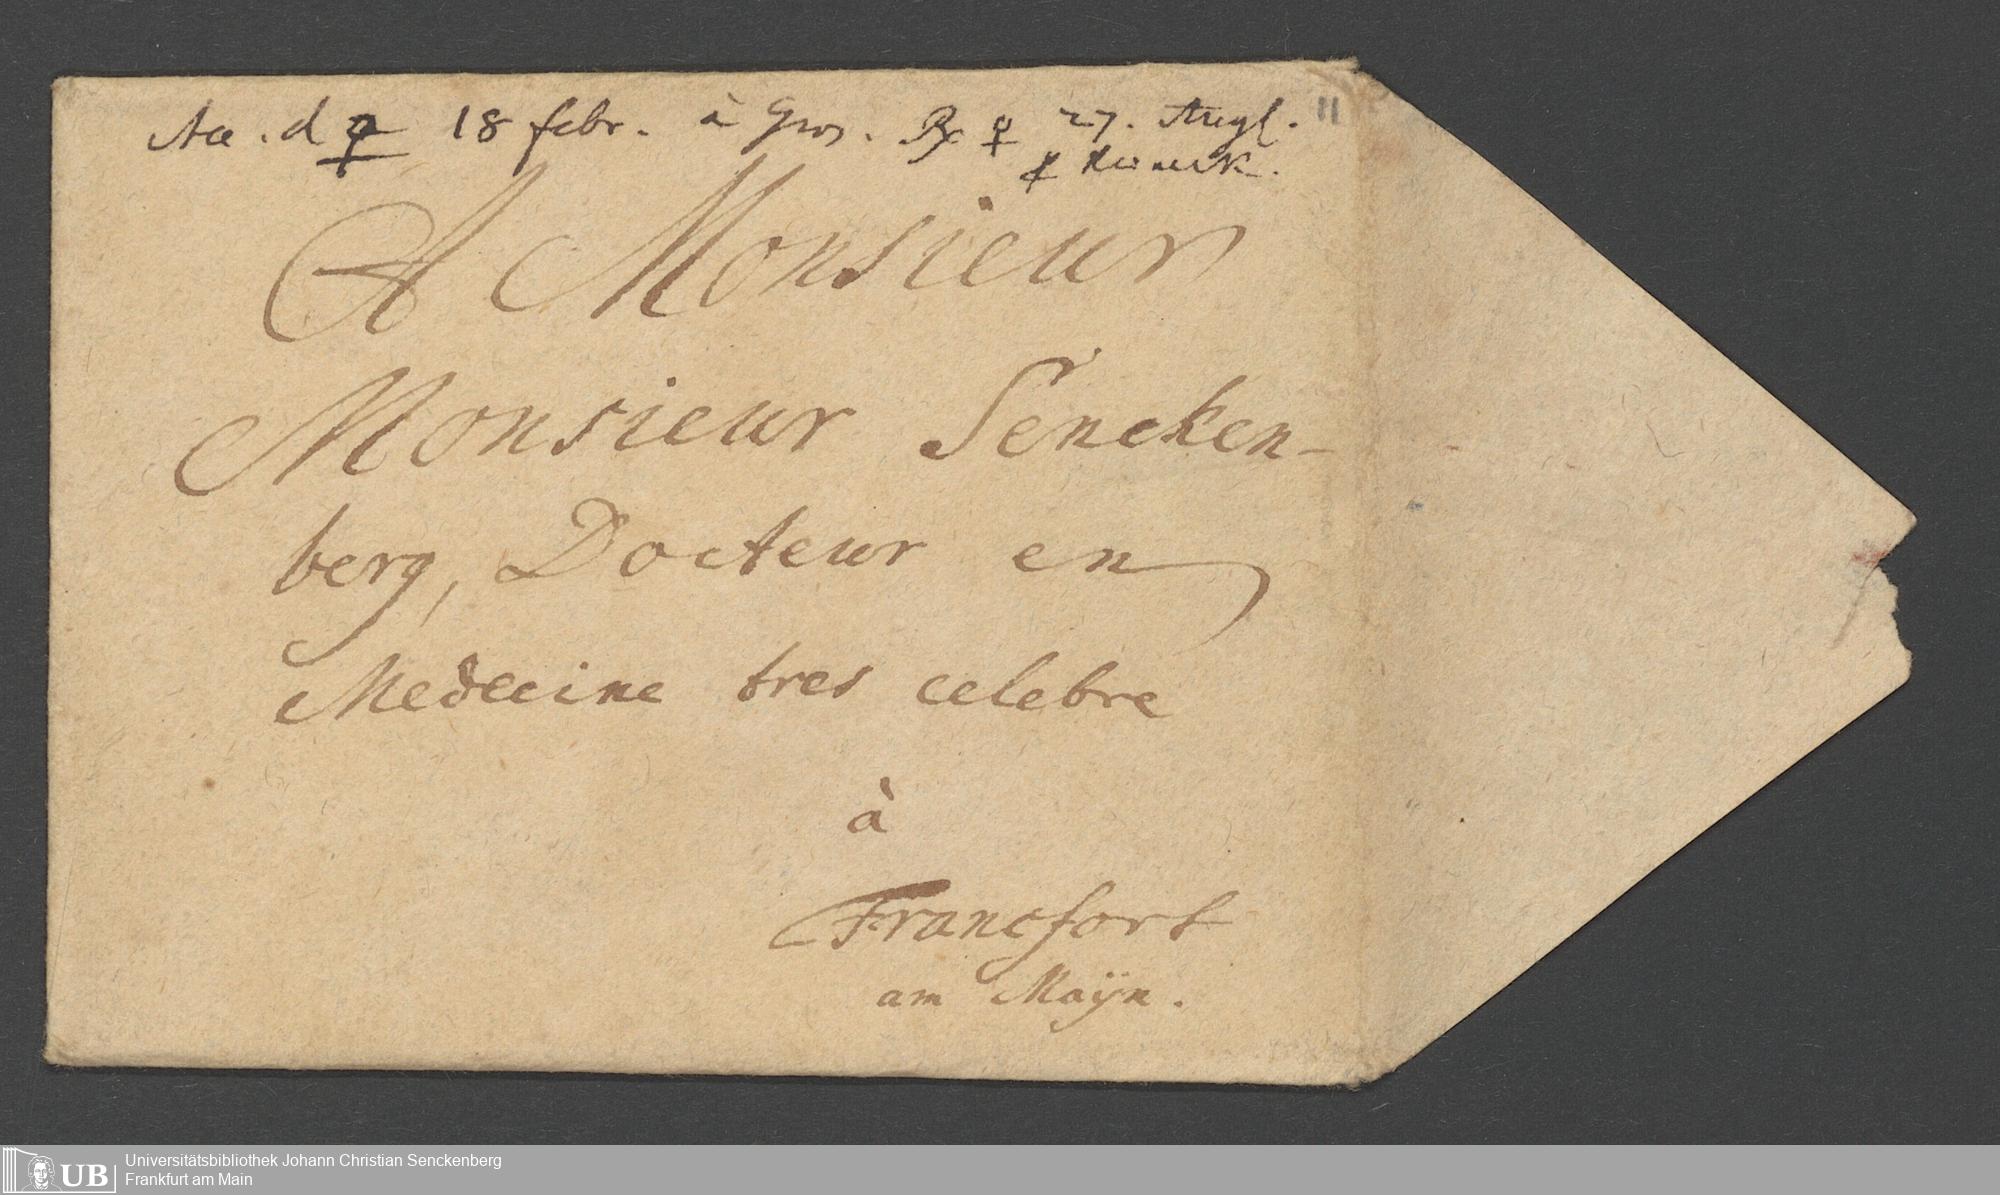 Acc. d ♀ 18 febr. à Gros. Rx ♀ 27. Aug
11
A Monsieur
Monsieur Sencken-
berg, Docteur en
Medecine tres celebre
à
Francfort
am Maÿn.
UB Universitätsbibliothek Johann Christian Senckenberg
Frankfurt am Main